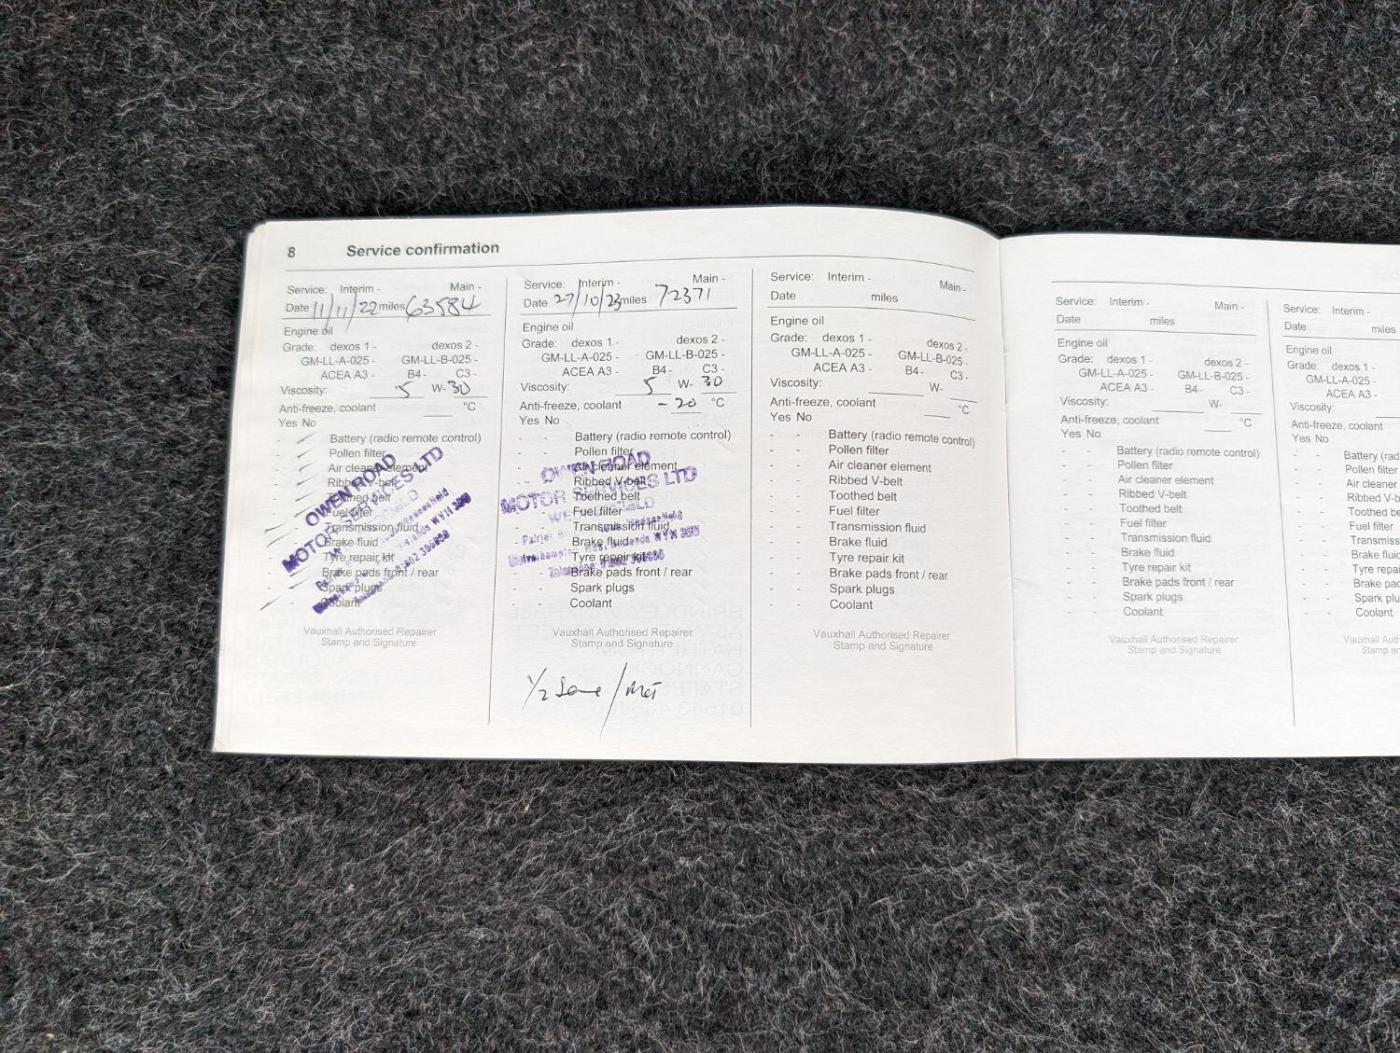 8 Service confirmation
Service: Interim - Main -
Date 11/11/22 miles 63584
Engine oil
Grade: dexos 1 - dexos 2 -
GM-LL-A-025 - GM-LL-B-025 -
ACEA A3 - B4- C3 -
Viscosity: 5 W-30
Anti-freeze, coolant °C
Yes No
- - Battery (radio remote control)
Pollen filter
Air cleaner element
Ribbed V-belt
Toothed belt
Fuel filter
Transmission fluid
Brake fluid
Tyre repair kit
Brake pads front / rear
Spark plugs
Coolant
OWEN ROAD
MOTOR SERVICES LTD
Vauxhall Authorised Repairer
Stamp and Signature
Service: Interim - Main -
Date 27/10/23 miles 72371
Engine oil
Grade: dexos 1 - dexos 2 -
GM-LL-A-025 - GM-LL-B-025 -
ACEA A3 - B4- C3 -
Viscosity: 5 W- 30
Anti-freeze, coolant -20 °C
Yes No
- - Battery (radio remote control)
- - Pollen filter
- - Air cleaner element
- - Ribbed V-belt
- - Toothed belt
- - Fuel filter
- - Transmission fluid
- - Brake fluid
- - Tyre repair kit
- - Brake pads front / rear
- - Spark plugs
- - Coolant
OWEN ROAD
MOTOR SERVICES LTD
Vauxhall Authorised Repairer
Stamp and Signature
1/2
Service: Interim - Main -
Date miles
Engine oil
Grade: dexos 1 - dexos 2 -
GM-LL-A-025 - GM-LL-B-025 -
ACEA A3 - B4- C3 -
Viscosity: W-
Anti-freeze, coolant °C
Yes No
- - Battery (radio remote control)
- - Pollen filter
- - Air cleaner element
- - Ribbed V-belt
- - Toothed belt
- - Fuel filter
- - Transmission fluid
- - Brake fluid
- - Tyre repair kit
- - Brake pads front / rear
- - Spark plugs
- - Coolant
Vauxhall Authorised Repairer
Stamp and Signature
Service: Interim - Main -
Date miles
Engine oil
Grade: dexos 1 - dexos 2 -
GM-LL-A-025 - GM-LL-B-025 -
ACEA A3 - B4- C3 -
Viscosity: W-
Anti-freeze, coolant °C
Yes No
- - Battery (radio remote control)
- - Pollen filter
- - Air cleaner element
- - Ribbed V-belt
- - Toothed belt
- - Fuel filter
- - Transmission fluid
- - Brake fluid
- - Tyre repair kit
- - Brake pads front / rear
- - Spark plugs
- - Coolant
Vauxhall Authorised Repairer
Stamp and Signature
Service: Interim -
Date miles
Engine oil
Grade: dexos 1 -
GM-LL-A-025 -
ACEA A3 -
Viscosity:
Anti-freeze, coolant
Yes No
- - Battery (rad
- - Pollen filter
- - Air cleaner
- - Ribbed V-b
- - Toothed be
- - Fuel filter
- - Transmiss
- - Brake fluid
- - Tyre repai
- - Brake pad
- - Spark plu
- - Coolant
Vauxhall Auth
Stamp an